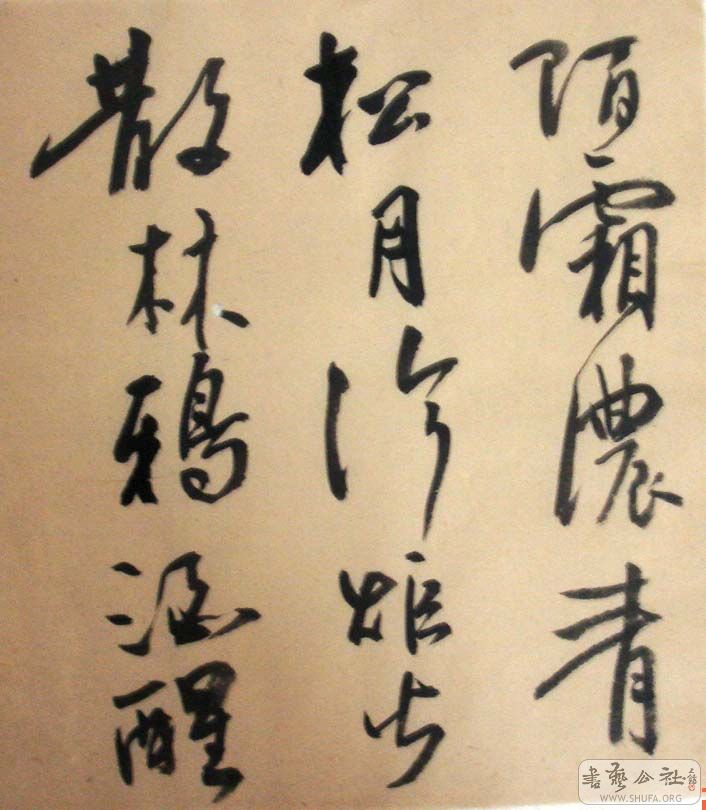 陌霜濃青
松月冷炬火
散林鴉酒醒
書藝公社
WWW.SHUFA.ORG